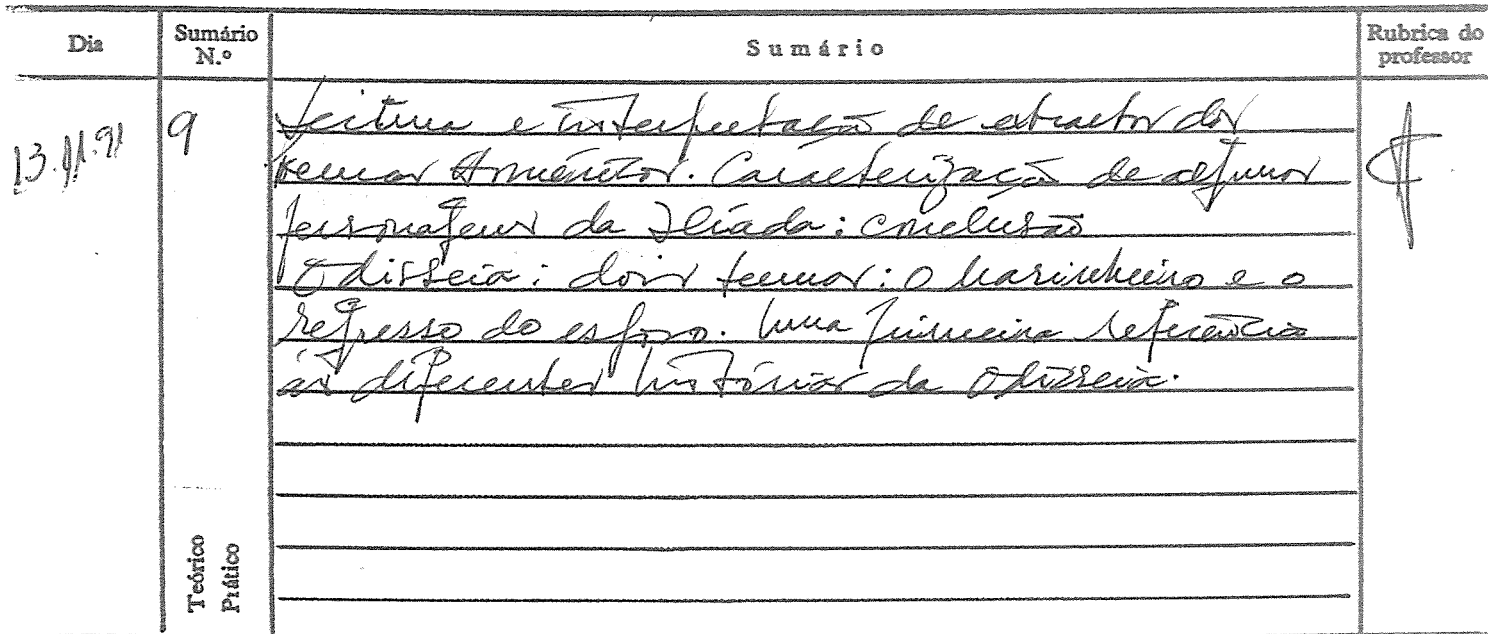 Dia
Sumário N.º
Sumário
Rubrica do professor
13.11.91
9
Leitura e interpretação de extractos dos
Poemas Homéricos. Caracterização de algumas
personagens da Ilíada: conclusão
Odisseia: dois temas: o marinheiro e o
regresso do esposo. Uma primeira referência
às diferentes histórias da Odisseia.
Teórico
Prático